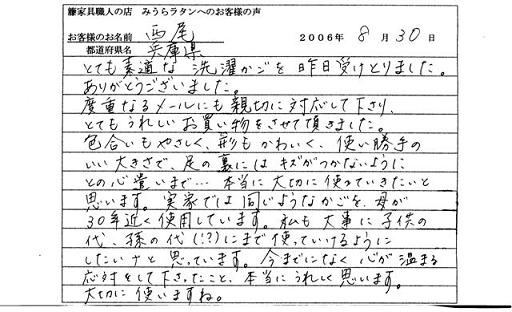 籐家具職人の店　みうらラタンへのお客様の声
お客様のお名前　西尾　2006年　8月30日
都道府県名　兵庫県
とても素適な洗濯かごを昨日受けとりました。
ありがとうございました。
度重なるメールにも親切に対応して下さり、
とてもうれしいお買い物をさせて頂きました。
色合いもやさしく、形もかわいく、使い勝手の
いい大きさで、足の裏にはキズがつかないように
との心遣いまで…本当に大切に使っていきたいと
思います。実家では同じようなかごを、母が
30年近く使用しています。私も大事に子供の
代、孫の代(!?)にまで使っていけるように
したいナと思っています。今までになく心が温まる
応対をして下さったこと、本当にうれしく思います。
大切に使いますね。